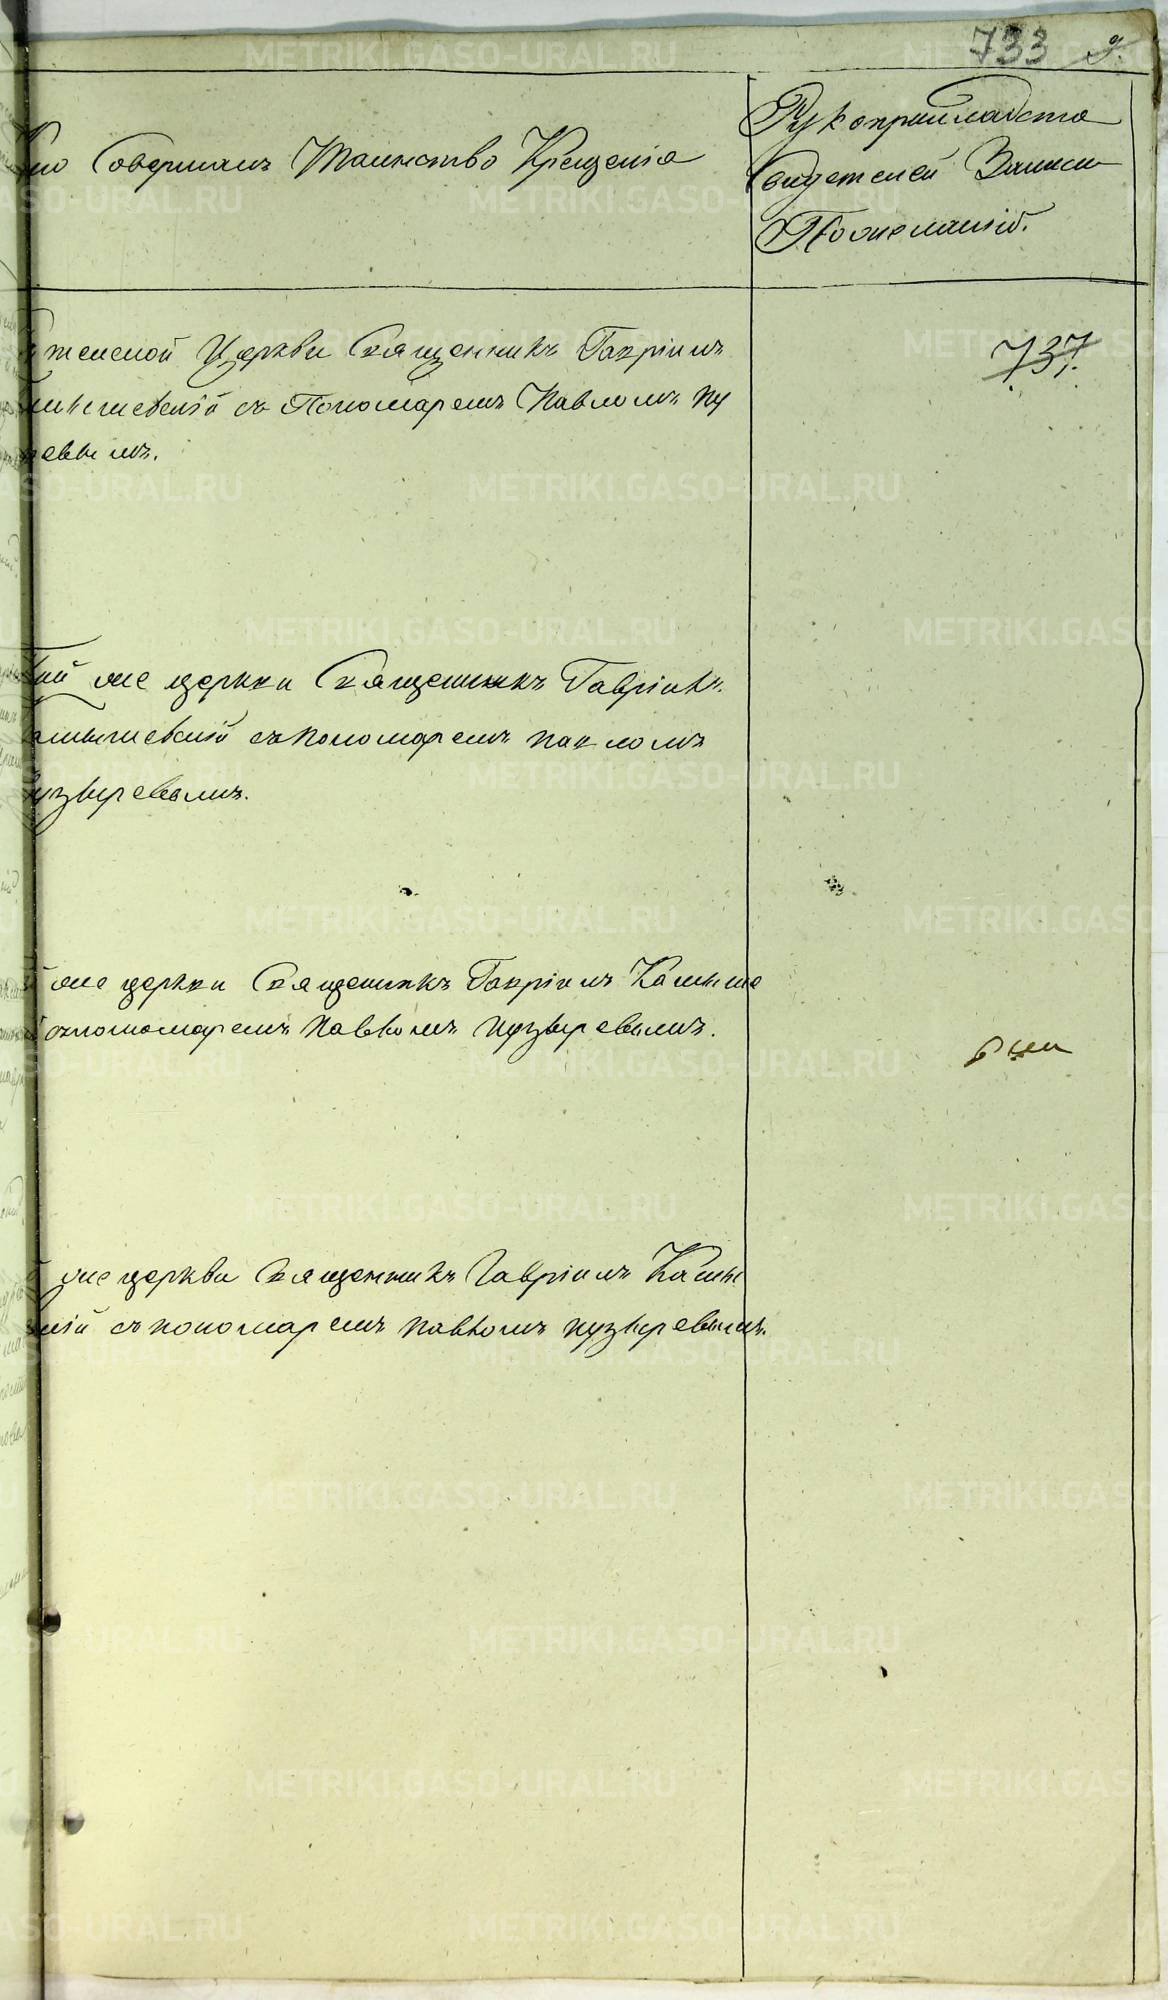 733 9.
Кто Совершалъ Таинство Крещенія
Рукоприкладство
Свидетелей Записи
По желанію.
женской Церкви Священникъ Гавріилъ
737.
съ Пономаремъ Павломъ Пу
ревымъ.
той же церкви Священникъ Гавріилъ
съ пономаремъ павломъ
Пузыревымъ.
же церкви Священникъ Гавріилъ Камыше
съ пономаремъ Павломъ Пузыревымъ.
же церкви Священникъ Гавріилъ Камы
кій съ пономаремъ павломъ пузыревымъ.
METRIKI.GASO-URAL.RU